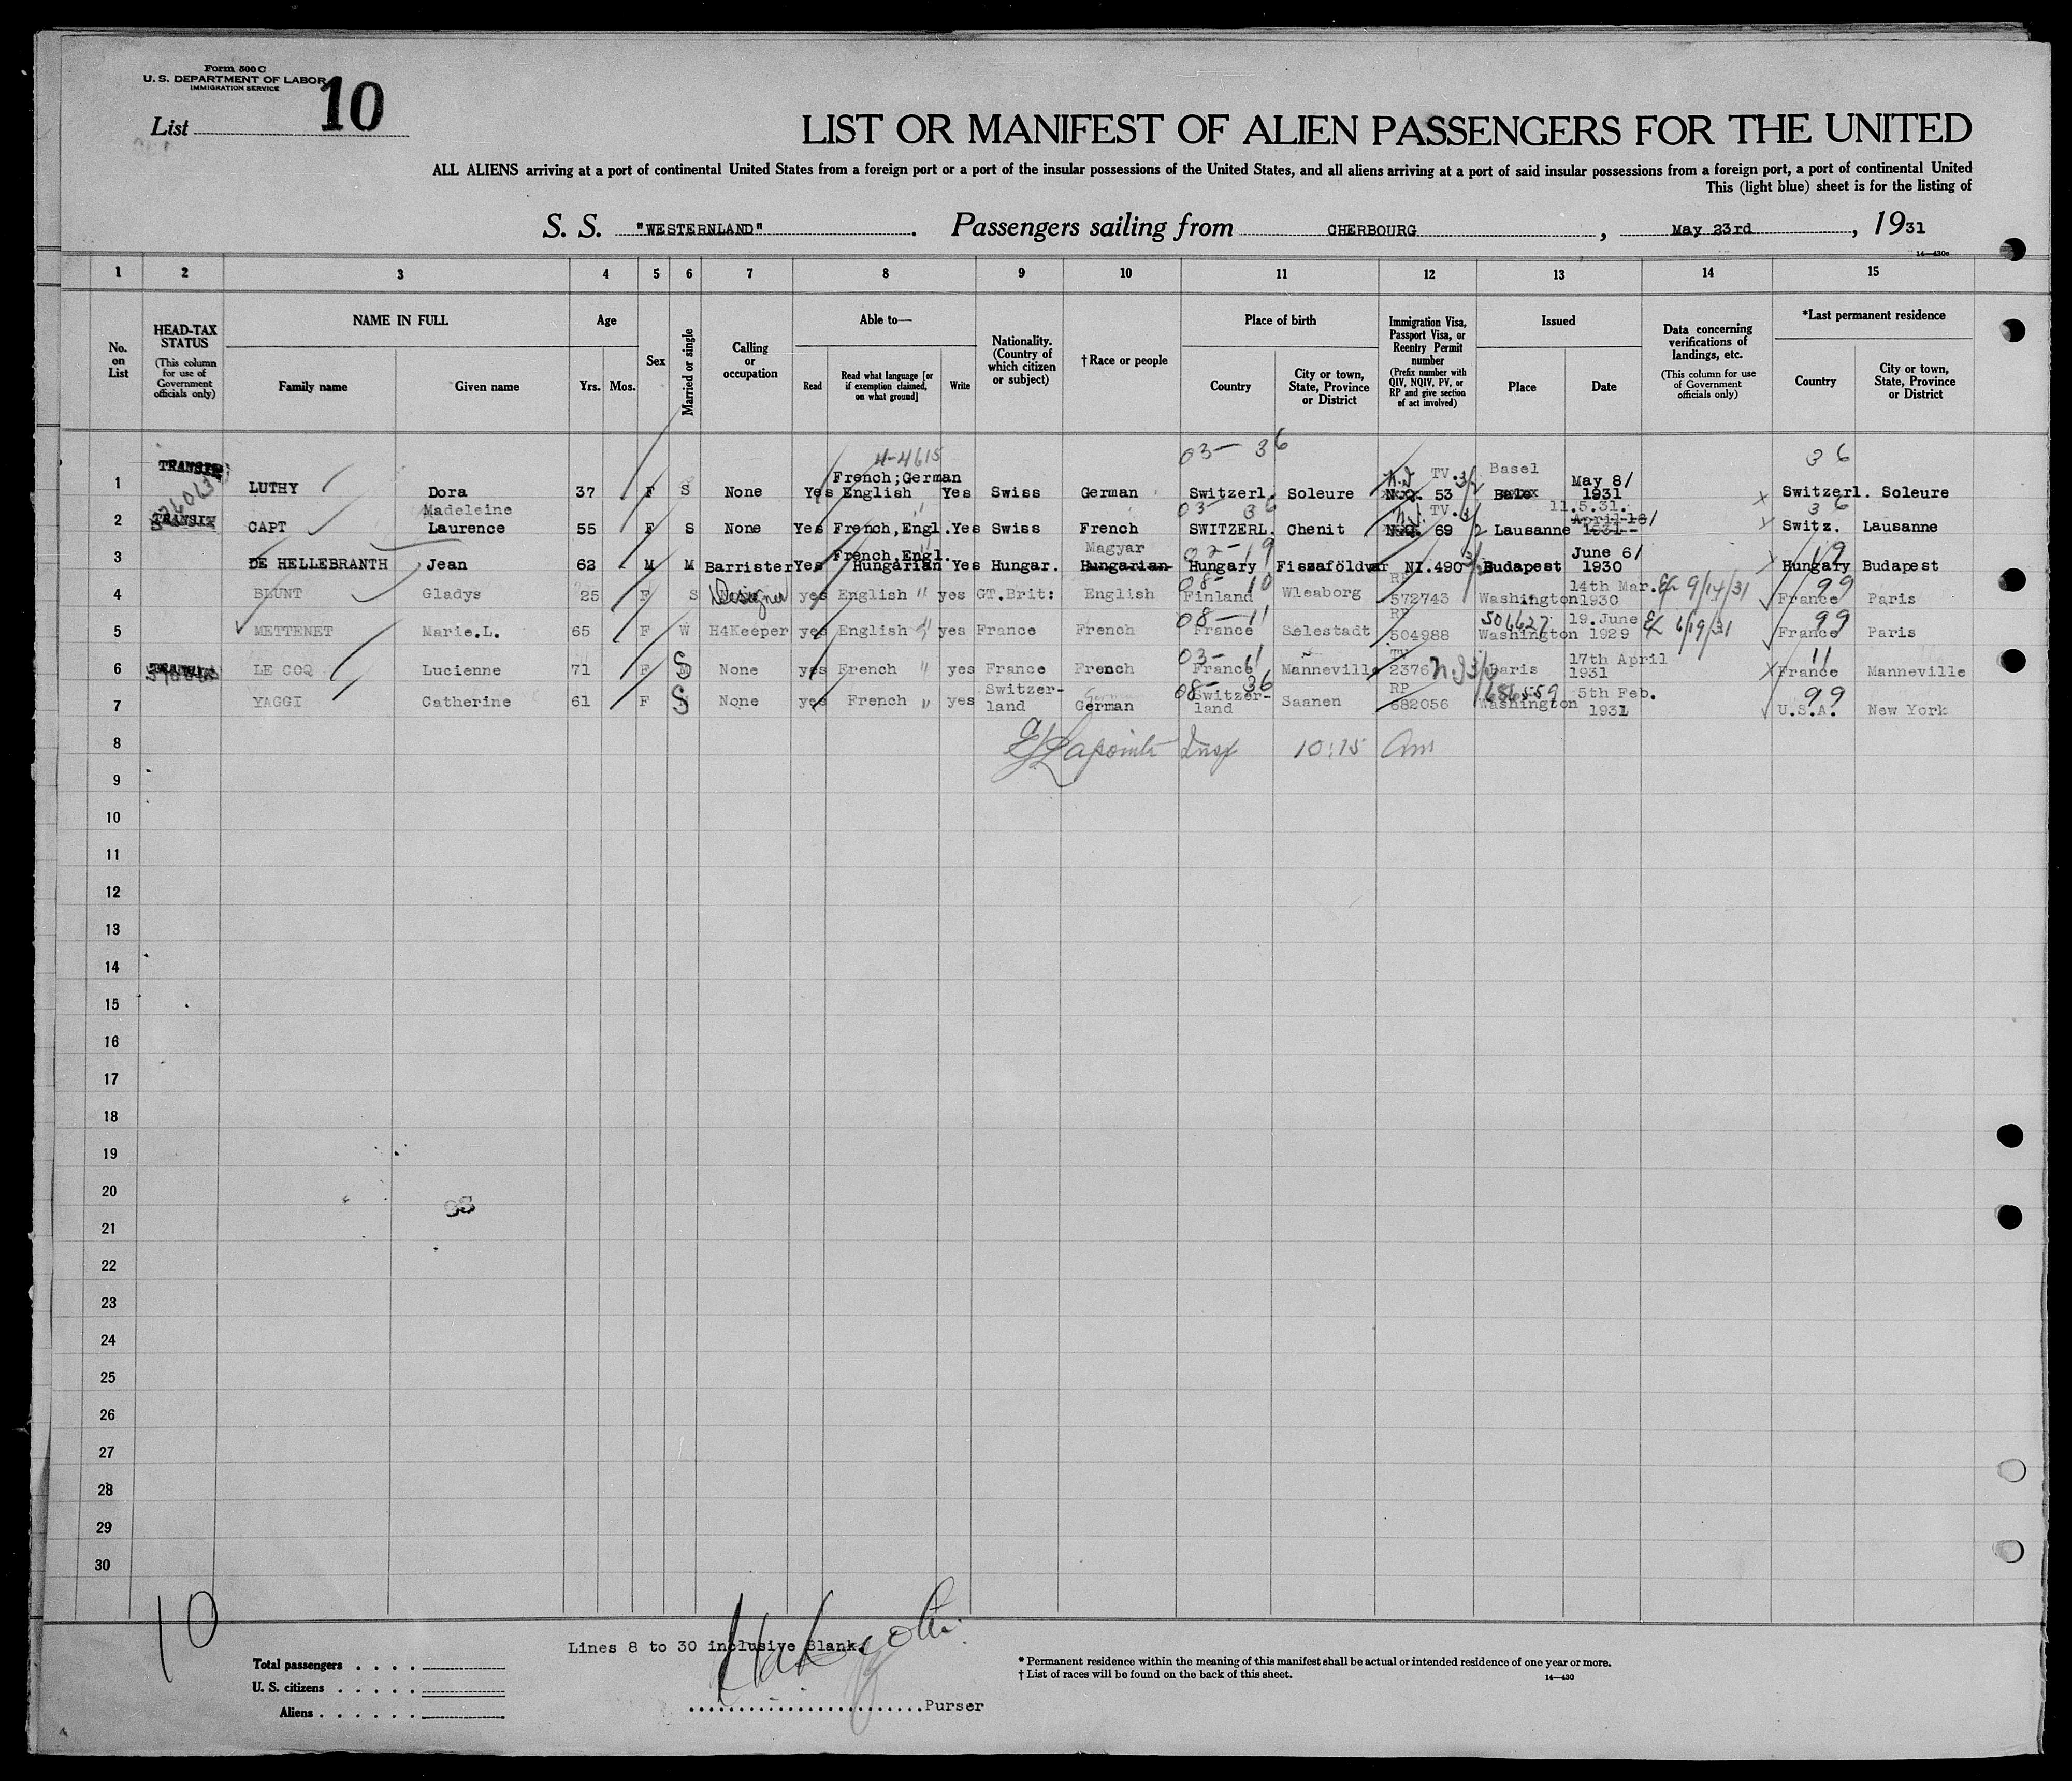 Form 500 C
U. S. DEPARTMENT OF LABOR
IMMIGRATION SERVICE
List 10
LIST OR MANIFEST OF ALIEN PASSENGERS FOR THE UNITED
ALL ALIENS arriving at a port of continental United States from a foreign port or a port of the insular possessions of the United States, and all aliens arriving at a port of said insular possessions from a foreign port, a port of continental United
This (light blue) sheet is for the listing of
S. S. "WESTERNLAND". Passengers sailing from CHERBOURG, May 23rd, 1931
14—430c
1 2 3 4 5 6 7 8 9 10 11 12 13 14 15
No. on List
HEAD-TAX STATUS (This column for use of Government officials only)
NAME IN FULL
Family name
Given name
Age
Yrs. Mos.
Sex
Married or single
Calling or occupation
Able to—
Read
Read what language [or if exemption claimed, on what ground]
Write
Nationality. (Country of which citizen or subject)
†Race or people
Place of birth
Country
City or town, State, Province or District
Immigration Visa, Passport Visa, or Reentry Permit number (Prefix number with QIV, NQIV, PV, or RP and give section of act involved)
Issued
Place
Date
Data concerning verifications of landings, etc. (This column for use of Government officials only)
*Last permanent residence
Country
City or town, State, Province or District
4-4615 03— 36 36
1 TRANSIT LUTHY Dora 37 F S None Yes French;German English Yes Swiss German Switzerl. Soleure TV.3/2 53 Basel May 8/ 1931 Switzerl. Soleure
03— 36 36
2 TRANSIT CAPT Madeleine Laurence 55 F S None Yes French,Engl. Yes Swiss French SWITZERL. Chenit TV.3/2 69 Lausanne 11.5.31. April 16/ 1931 Switz. Lausanne
02—19 19
3 DE HELLEBRANTH Jean 62 M M Barrister Yes French,Engl. Hungarian Yes Hungar. Magyar Hungarian Hungary Fiszaföldvar NI.490 3/2 Budapest June 6/ 1930 Hungary Budapest
08— 10 99
4 BLUNT Gladys 25 F S Designer yes English " yes GT.Brit: English Finland Wleaborg RP 572743 Washington 14th Mar. 1930 9/14/31 France Paris
08—11 99
5 METTENET Marie.L. 65 F W H4Keeper yes English " yes France French France Selestadt RP 504988 506627 Washington 19.June 1929 6/19/31 France Paris
03— 11 11
6 TRANSIT LE COQ Lucienne 71 F S None yes French " yes France French France Manneville TV 2376 Paris 17th April 1931 France Manneville
08— 36 99
7 YAGGI Catherine 61 F S None yes French " yes Switzer- land German Switzer- land Saanen RP 682056 686559 Washington 5th Feb. 1931 U.S.A. New York
8 Lapointe Insp 10:15 Am
9
10
11
12
13
14
15
16
17
18
19
20
21
22
23
24
25
26
27
28
29
30
10
Lines 8 to 30 inclusive Blank.
Total passengers
U. S. citizens
Aliens
Purser
* Permanent residence within the meaning of this manifest shall be actual or intended residence of one year or more.
† List of races will be found on the back of this sheet.
14—430